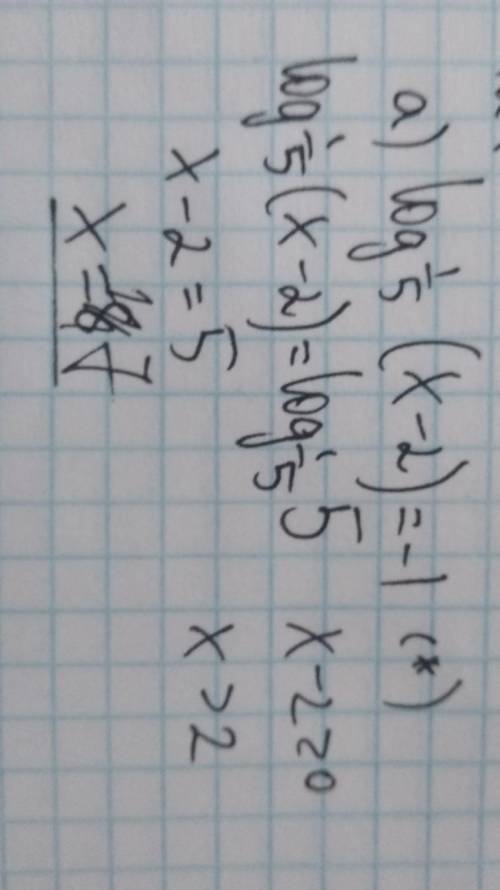 a) log 1/5 (x-2) = -1 (*)
log 1/5 (x-2) = log 1/5 5 x-2>0
x-2 = 5 x > 2
x = 7